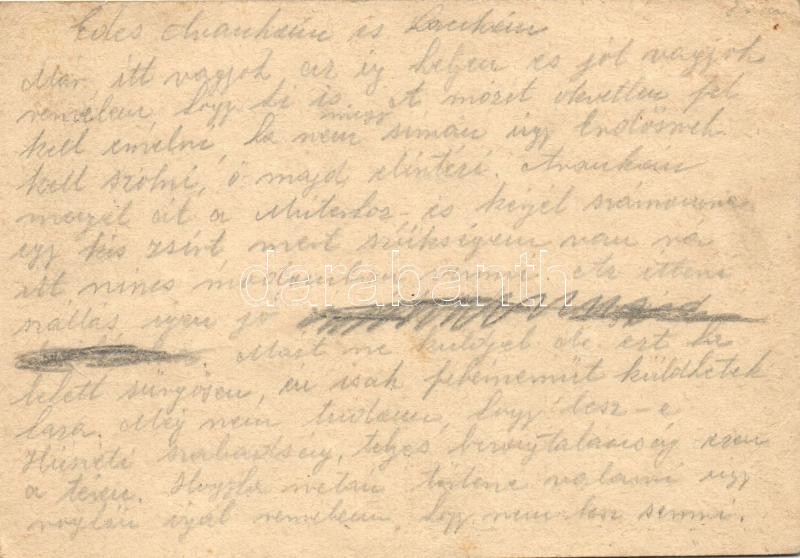 Édes Arank és
Már itt vagyok az új helyen és jól vagyok
remélem, hogy ti is. A mozit okvetlen fel
kell emelni ha nem simán úgy Erdősnek
kell szólni, ő majd elintézi. Arank
menjél át a és kérjél számomra
egy kis zsírt mert szükségem van rá
itt nincs semmi. Az itteni
szállás igen jó
Mást ne küldjél de ezt ha
lehet sürgősen, én csak fehérneműt küldhetek
haza. Még nem tudom, hogy lesz-e
Húsvéti szabadság, teljes bizonytalanság ezen
a téren. Hogyha netán történe valami úgy
rögtön írjál remélem, hogy nem lesz semmi.
darabanth